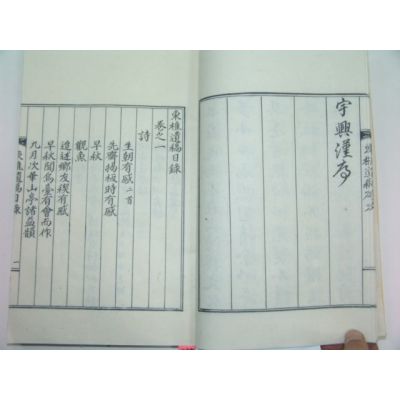 宇興漢序
東樵遺稿目錄
卷之一
詩
生朝有感二首
先齋揭板時有感
早秋
觀魚
逭逑鄉友稧有感
早秋聞鳥臺有會而作
九月次華山亭諸益韻
東樵遺稿目錄